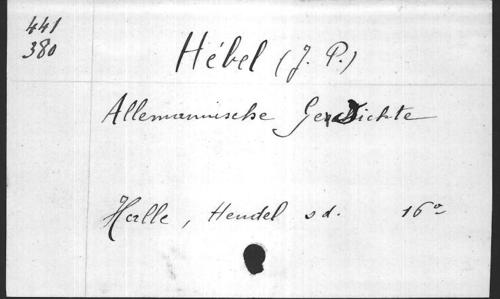 441
380
Hébel (J. P.)
Allemannische Gedichte
Halle, Hendel sd. 16°